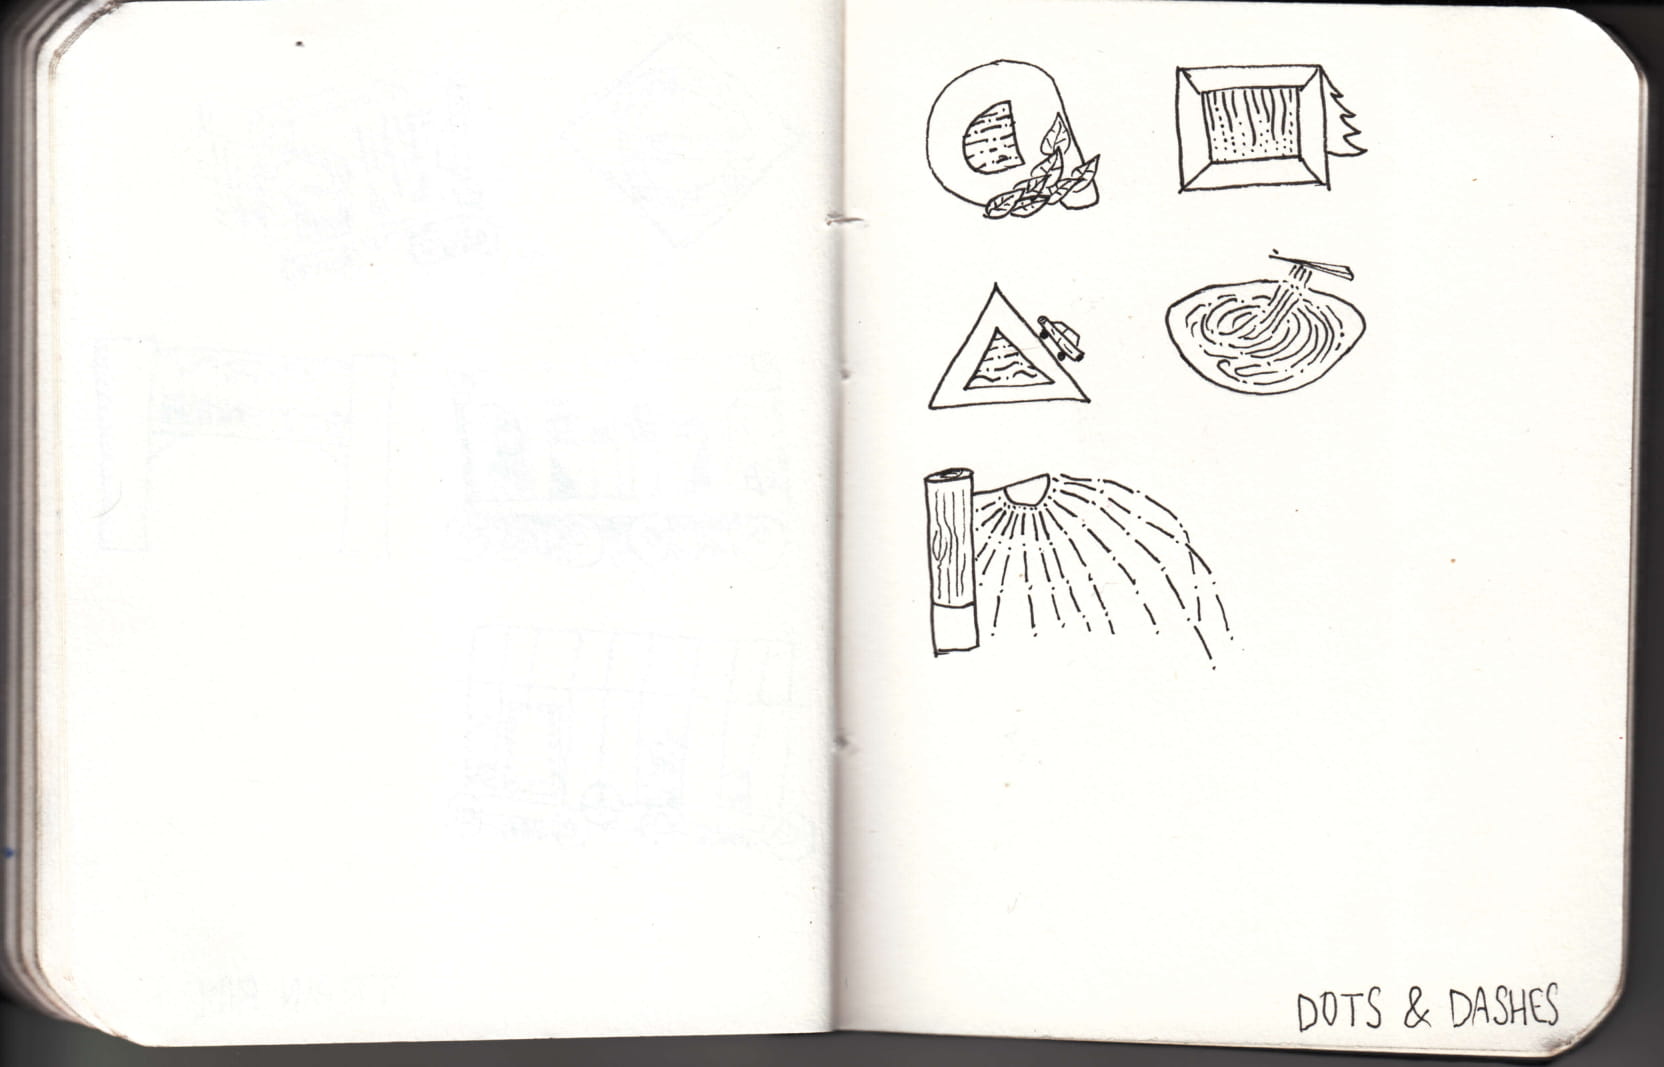 DOTS & DASHES